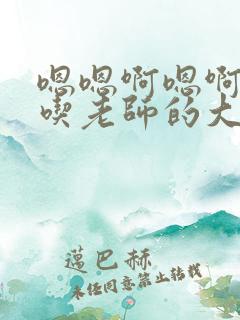 嗯嗯啊嗯啊
喫老師的大
邁巴赫
未经同意禁止转载